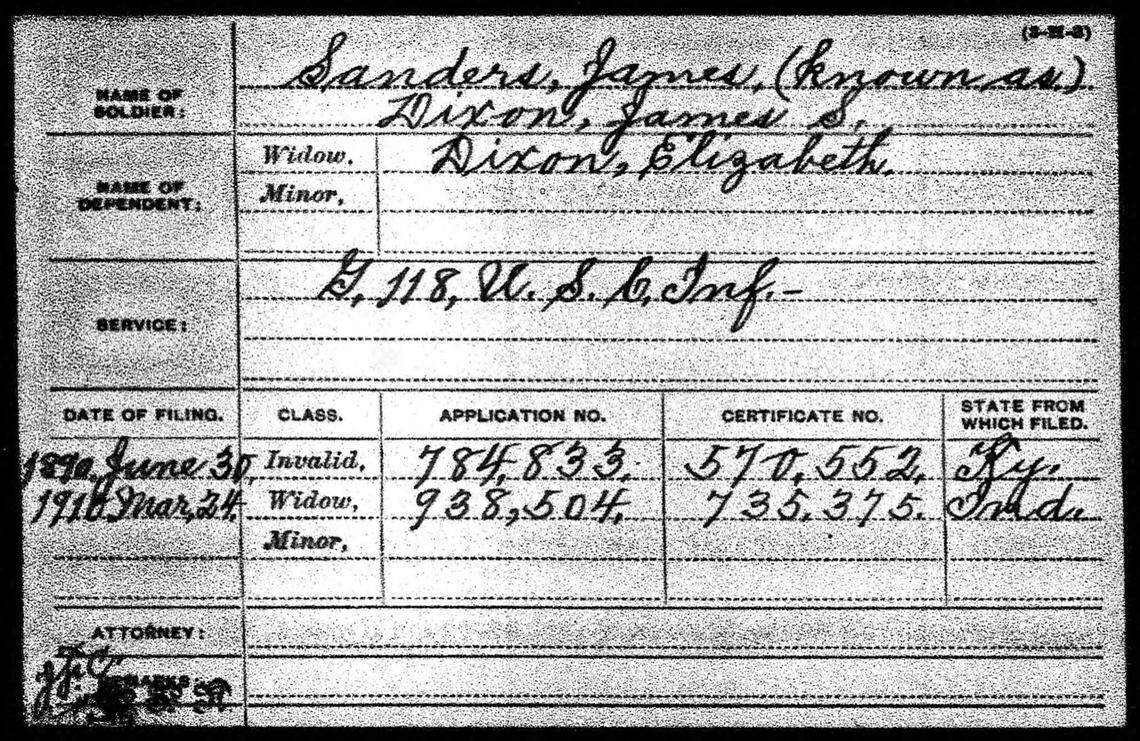 Sanders, James, (known as)
NAME OF SOLDIER:
Dixon, James S.
Widow, Dixon, Elizabeth.
NAME OF DEPENDENT:
Minor,
G, 118, U. S. C. Inf.-
SERVICE:
DATE OF FILING. CLASS. APPLICATION NO. CERTIFICATE NO. STATE FROM WHICH FILED.
1890, June 30, Invalid, 784,833. 570,552. Ky.
1910 Mar, 24. Widow, 938,504. 735,375. Ind.
Minor,
ATTORNEY: